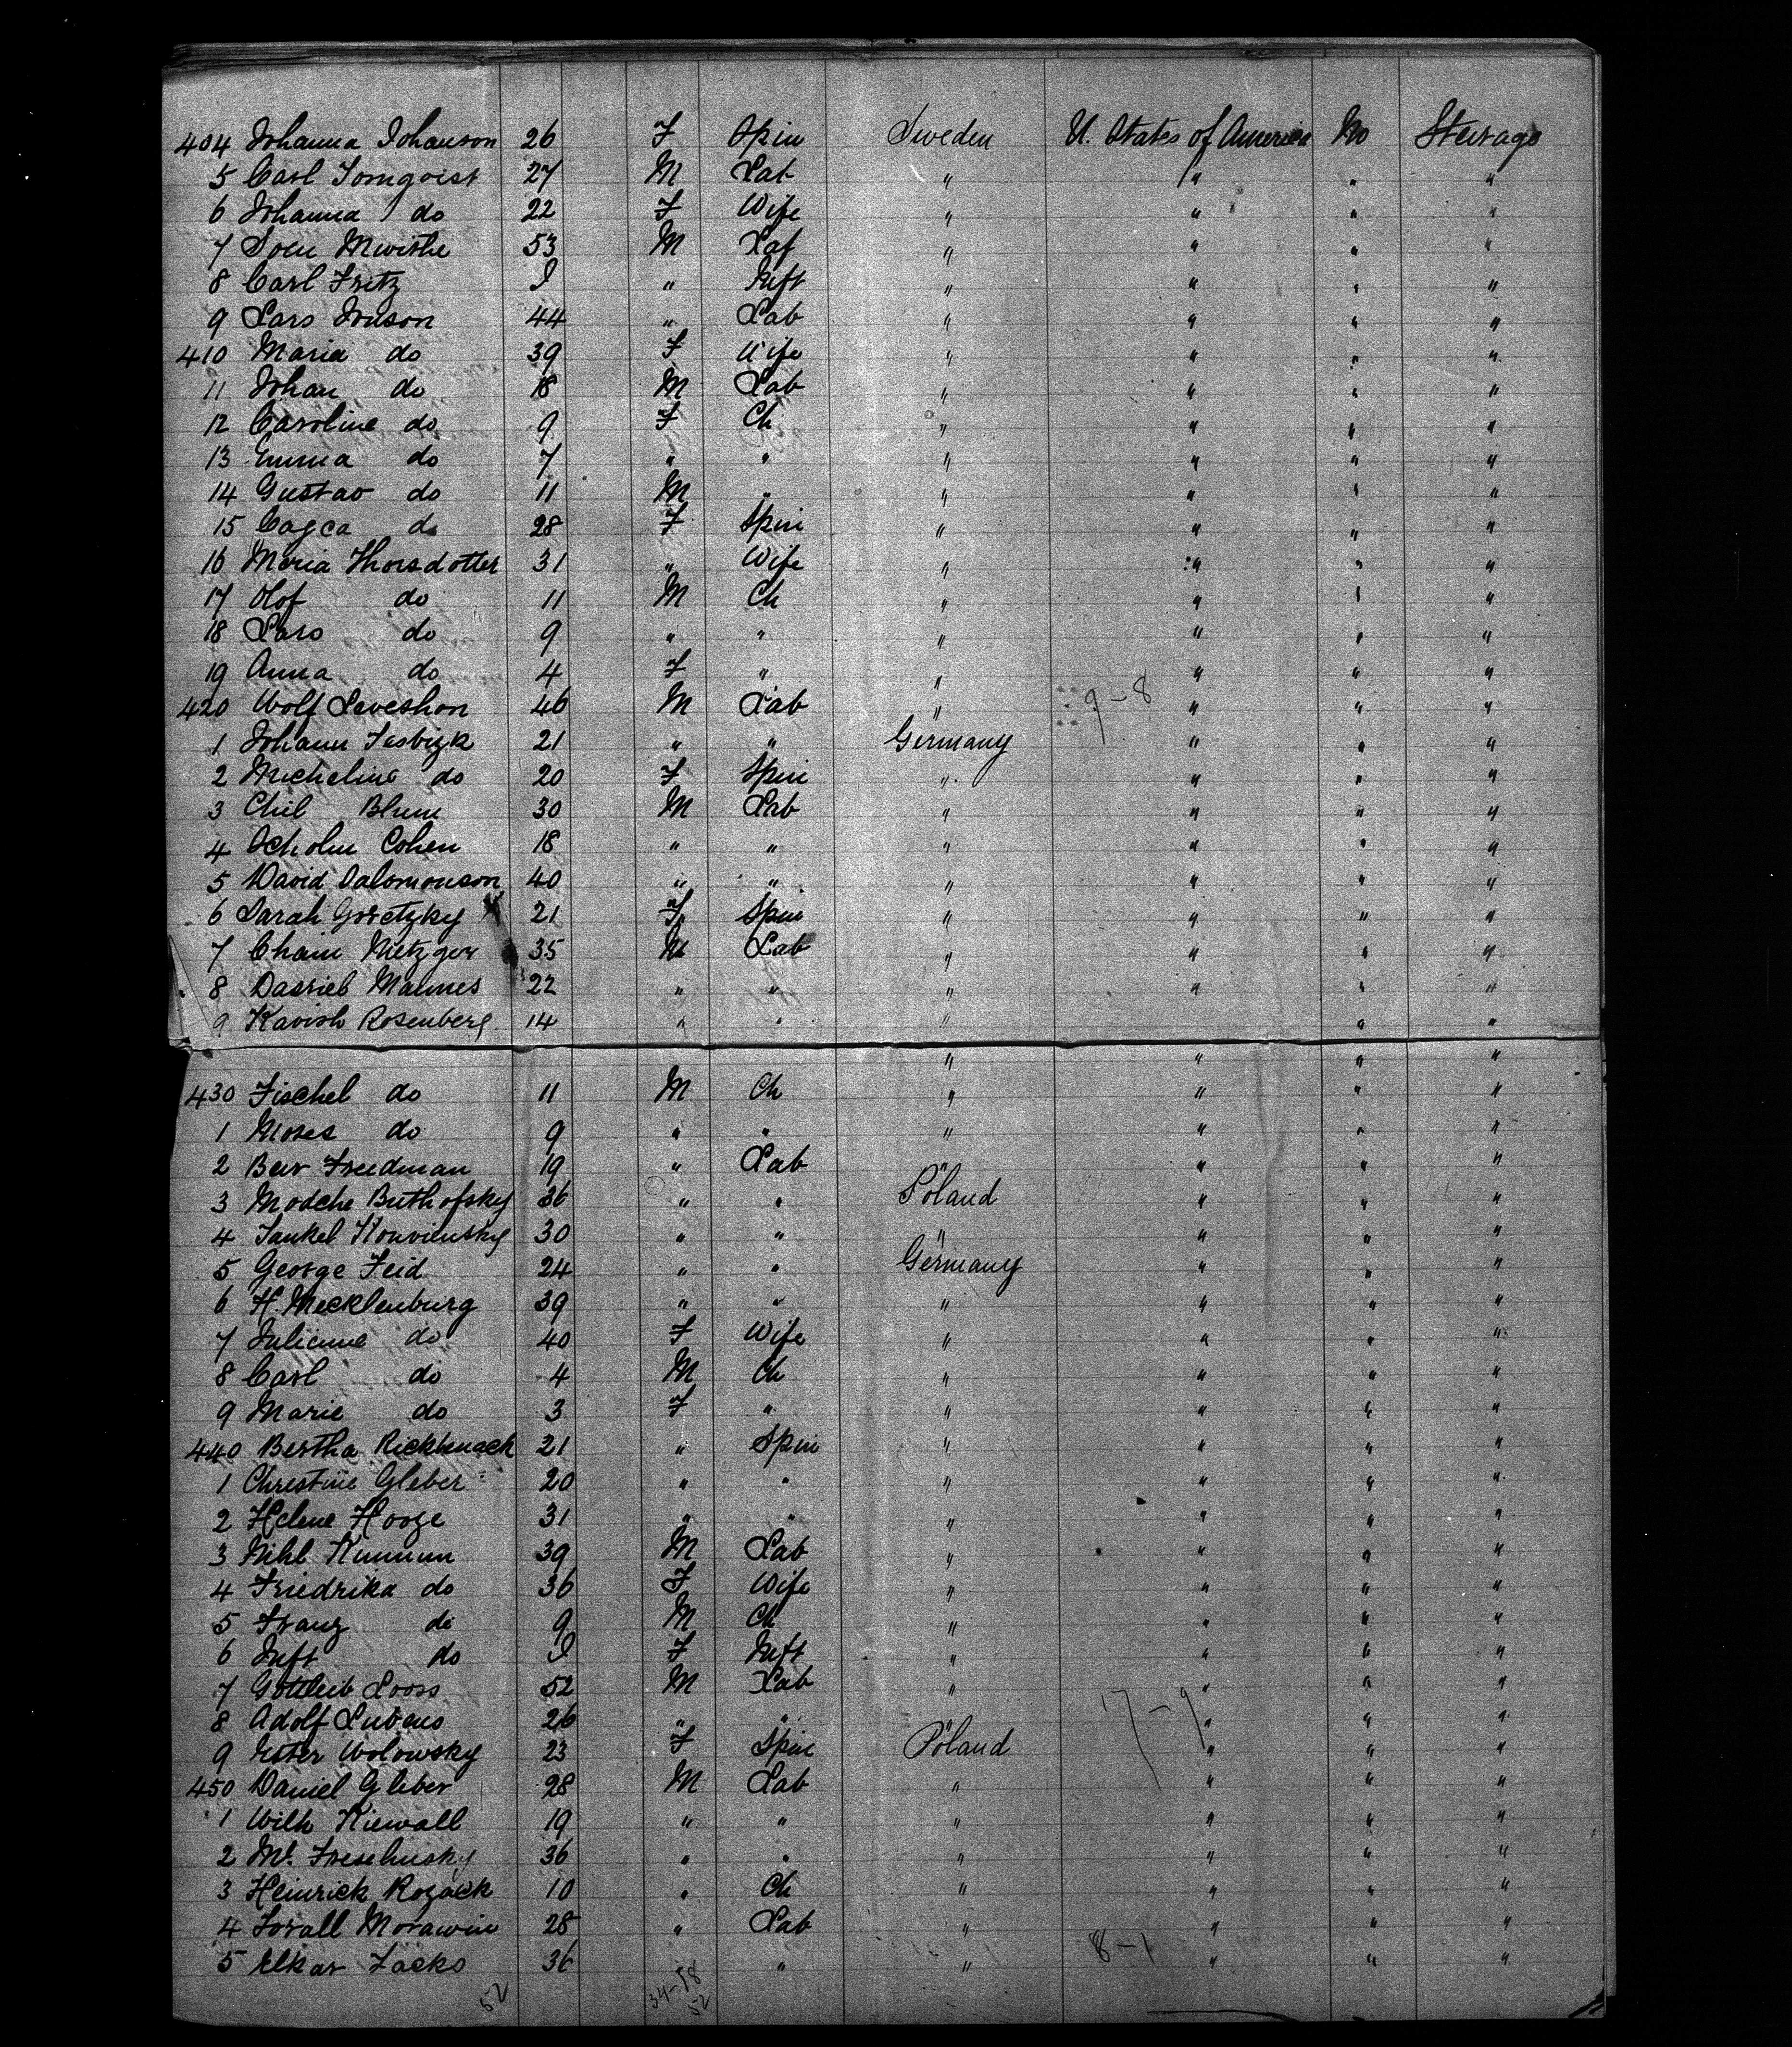 404 Johanna Johanson 26 F Spin Sweden U. States of America No Steerage
5 Carl Tornqvist 27 M Lab " " " "
6 Johanna do 22 F Wife " " " "
7 53 M Lab " " " "
8 Carl Fritz " Inft " " " "
9 Lars Jonson 44 " Lab " " " "
410 Maria do 39 F Wife " " " "
11 Johan do 18 M Lab " " " "
12 Caroline do 9 F Ch " " " "
13 Emma do 7 " " " " " "
14 Gustav do 11 M " " " " "
15 Cajca do 28 F Spin " " " "
16 Maria Thorsdotter 31 " Wife " " " "
17 Olof do 11 M Ch " " " "
18 Lars do 9 " " " " " "
19 Anna do 4 F " " " " "
420 Wolf Leveshon 46 M Lab " 9-8 " " "
1 Johann 21 " " Germany " " "
2 Micheline do 20 F Spin " " " "
3 Chil Blum 30 M Lab " " " "
4 Scholm Cohen 18 " " " " " "
5 David Salomonson 40 " " " " " "
6 Sarah Goretzky 21 F Spin " " " "
7 Chaim Metzger 35 M Lab " " " "
8 22 " " " " " "
9 Kavish Rosenberg 14 " " " " "
" " " "
430 Fischel do 11 M Ch " " " "
1 Moses do 9 " " " " " "
2 Ber Freedman 19 " Lab " " " "
3 Modche Buthofsky 36 " " Poland " " "
4 Jankel 30 " " " " " "
5 George Feid 24 " " Germany " " "
6 H. Mecklenburg 39 " " " " " "
7 Julienne do 40 F Wife " " " "
8 Carl do 4 M Ch " " " "
9 Marie do 3 F " " " " "
440 Bertha 21 " Spin " " " "
1 Christine Gleber 20 " " " " " "
2 Helene Hooge 31 " " " " " "
3 39 M Lab " " " "
4 Friedrika do 36 F Wife " " " "
5 Franz do 9 M Ch " " " "
6 Inft do F Inft " " " "
7 Gottleib Looss 52 M Lab " " " "
8 Adolf Lubens 26 " " " 17-9 " " "
9 Ester Wolowsky 23 F Spin Poland " " "
450 Daniel Gleber 28 M Lab " " " "
1 Wilh Kiewall 19 " " " " " "
2 36 " " " " " "
3 Heinrick Rozack 10 " Ch " " " "
4 Morawin 28 " Lab " " " "
5 Elkar Jacks 36 " " 8-1 " " "
52 34-18
52